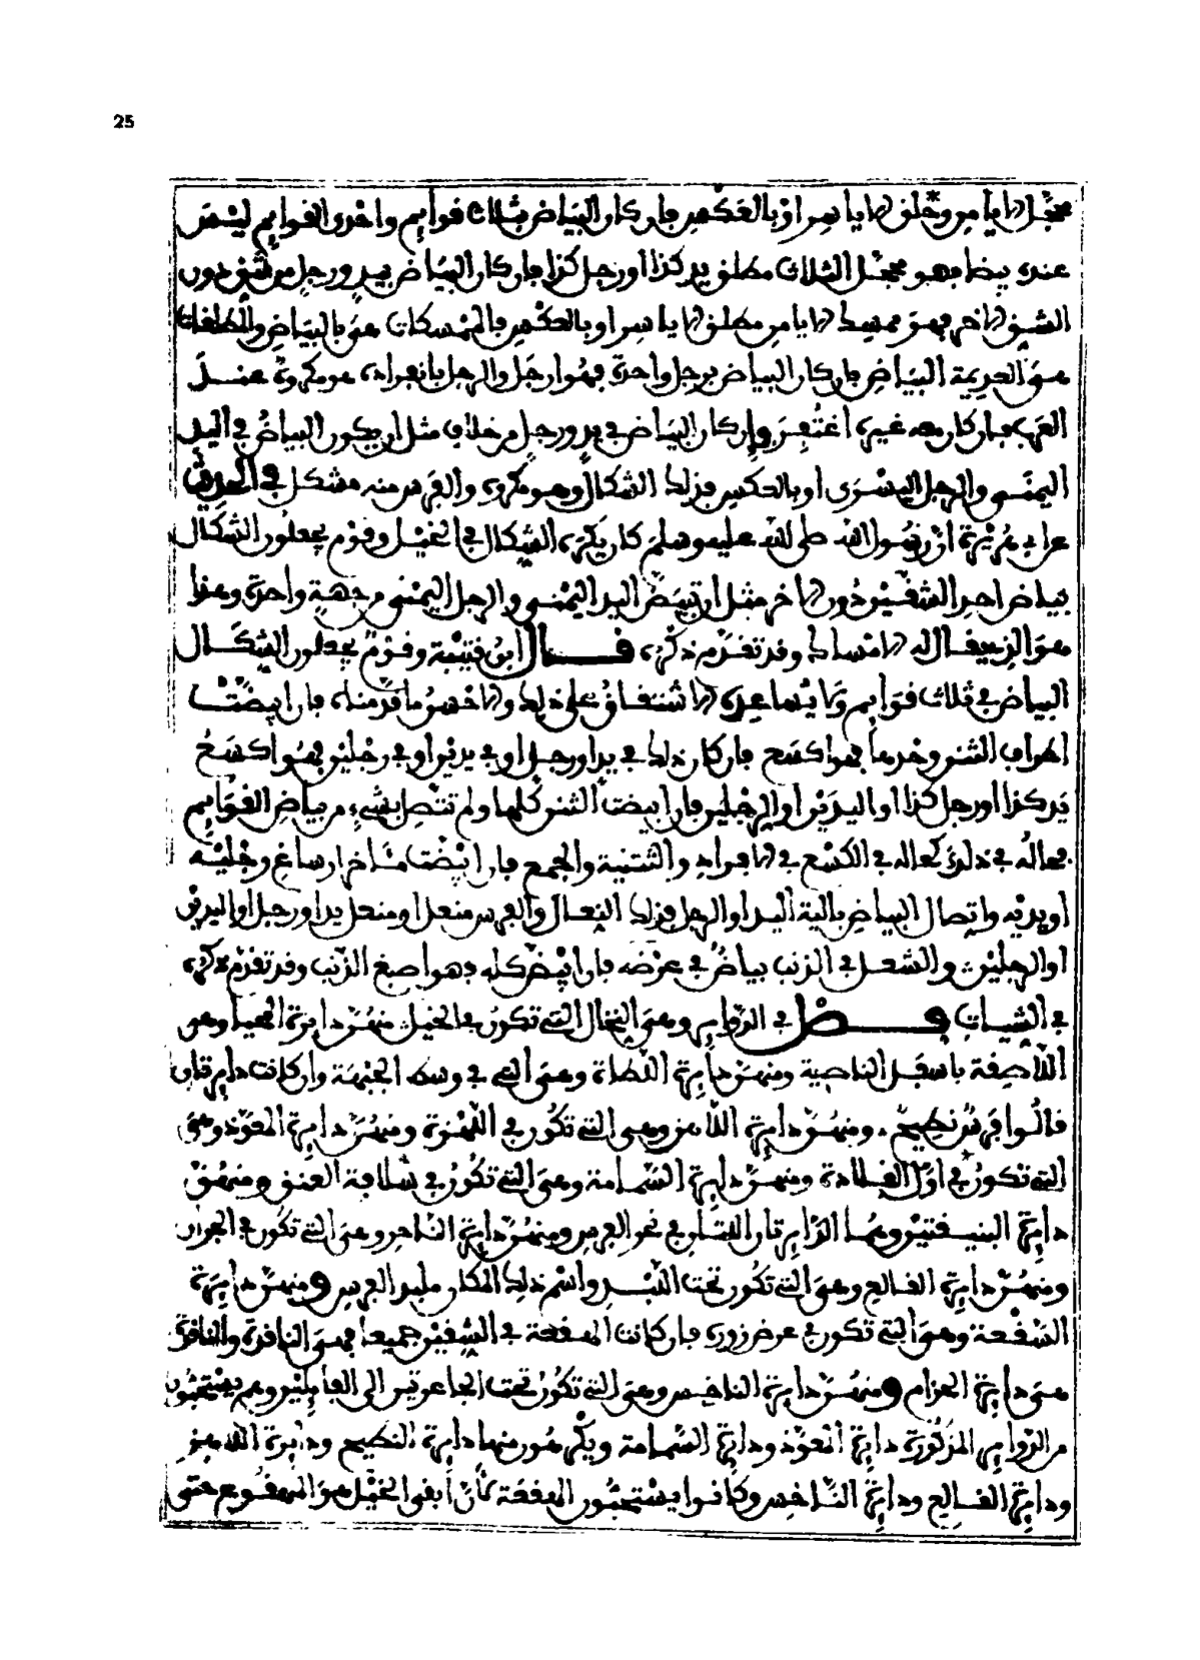 25
محجل الايامن ومطلق الاياسر او بالعكس فان كان البياض بثلاث قوائم واحدى القوايم ليست
عنده بيضا فهو محجل الثلاث مطلق يد كذا او رجل كذا فان كان البياض بيد ورجل من شق دون
الشق الاخر فهو ممسك الايامن مطلق الاياسر او بالعكس فالممسكات هي بالبياض والمطلقات
هي العديمة البياض فان كان البياض برجل واحدة فهو ارجل والرجل بانفراده هو مكروه عند
العرب فان كان معه غيره اغتفر وان كان البياض في يد ورجل من خلاف مثل ان يكون البياض في اليد
اليمنى والرجل اليسرى او بالعكس فذلك الشكال وهو مكروه والفرس منه مشكل في الحديث
عن ابي هريرة ان رسول الله صلى الله عليه وسلم كان يكره الشكال في الخيل وقوم يجعلون الشكال
بياض احد الشقين دون الاخر مثل ان تبيض اليد اليمنى والرجل اليمنى من جهة واحدة وهذا
هو الذي يقال له الامساك وقد تقدم ذكره قال ابن قتيبة وقوم يجعلون الشكال
البياض في ثلاث قوايم وما يساعده الاشتقاق على ذلك والاحسن ما قدمناه فان ابيضت
اطراف الثنن وحدها فهو اكسع فان كان ذلك في يد او رجل او في يدين او في رجلين فهو اكسع
يد كذا او رجل كذا او اليدين او الرجلين فان ابيضت الثنن كلها ولم تتصل بشيء من بياض القوايم
فحاله في ذلك كحاله في الكسع في الافراد والتثنية والجمع فان ابيضت مآخر ارساغ رجليه
او يديه واتصال البياض بالية اليد او الرجل فذلك النعال والفرس منعل او منعل يد او رجل او اليدين
او الرجلين والشعل في الذنب بياض في عرضه فان ابيض كله فهو اصبغ الذنب وقد تقدم ذكره
في الشيات فصل في الدواير وهي النخال التي تكون في الخيل منهن دايرة المحيا وهي
اللاصقة باسفل الناصية ومنهن دايرة اللطاة وهي التي في وسط الجبهة وان كانت دايرتان
قالوا فرس نطيح ومنهن دايرة اللاهز وهي التي تكون في اللهزمة ومنهن دايرة المعوذ وهي
التي تكون في اول القلادة ومنهن دايرة السمامة وهي التي تكون في سلافة العنق ومنهن
دايرة البنيقتين وهما الدايرتان اللتان في نحر الفرس ومنهن دايرة الناحر وهي التي تكون في الجران
ومنهن دايرة القالع وهي التي تكون تحت اللبد واسم ذلك المكان ملبد الفرس ومنهن دايرة
الهقعة وهي التي تكون في عرض زوره فان كانت الهقعة في الشقين جميعا فهي النافذة والنافذة
هي دايرة الحزام ومنهن دايرة الناخس وهي التي تكون تحت الجاعرتين الى الفايلين وهم يستحبون
من الدواير المذكورة دايرة المعوذ ودايرة السمامة ويكرهون منها دايرة النطيح ودايرة اللاهز
ودايرة القالع ودايرة الناخس وكانوا يستحبون الهقعة لان ابقى الخيل هو المهقوع حتى